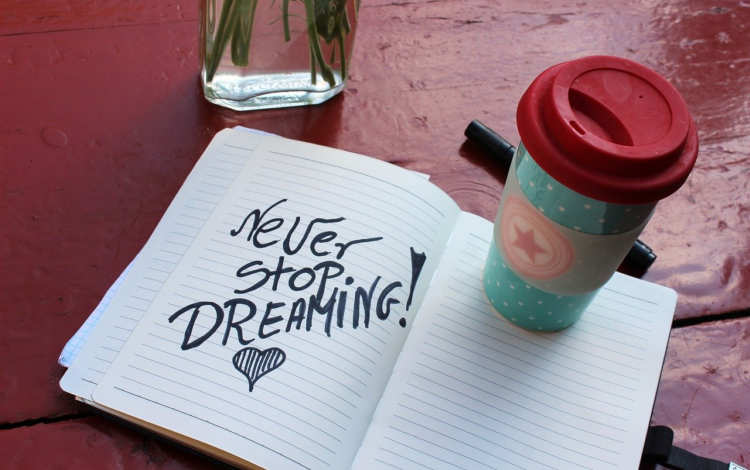 Never
STOP
DREAMING!